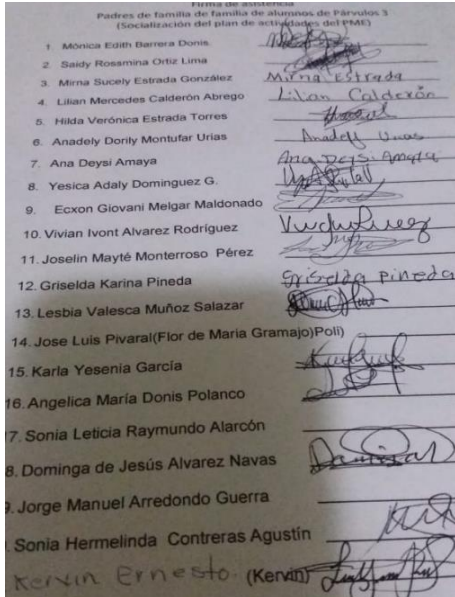 Firma de asistencia
Padres de familia de familia de alumnos de Párvulos 3
(Socialización del plan de actividades del PME)
1. Mónica Edith Barrera Donis
2. Saidy Rossmina Ortiz Lima
3. Mirna Sucely Estrada González Mirna Estrada
4. Lilian Mercedes Calderón Abrego Lilian Calderón
5. Hilda Verónica Estrada Torres
6. Anadely Dorily Montufar Urias
7. Ana Deysi Amaya Ana Deysi Amaya
8. Yesica Adaly Dominguez G.
9. Ecxon Giovani Melgar Maldonado
10. Vivian Ivont Alvarez Rodríguez
11. Joselin Mayté Monterroso Pérez
12. Griselda Karina Pineda Griselda Pineda
13. Lesbia Valesca Muñoz Salazar
14. Jose Luis Pivaral(Flor de Maria Gramajo)Poli)
15. Karla Yesenia García
16. Angelica María Donis Polanco
7. Sonia Leticia Raymundo Alarcón
8. Dominga de Jesús Alvarez Navas
. Jorge Manuel Arredondo Guerra
. Sonia Hermelinda Contreras Agustín
Kervin Ernesto. (Kervin)